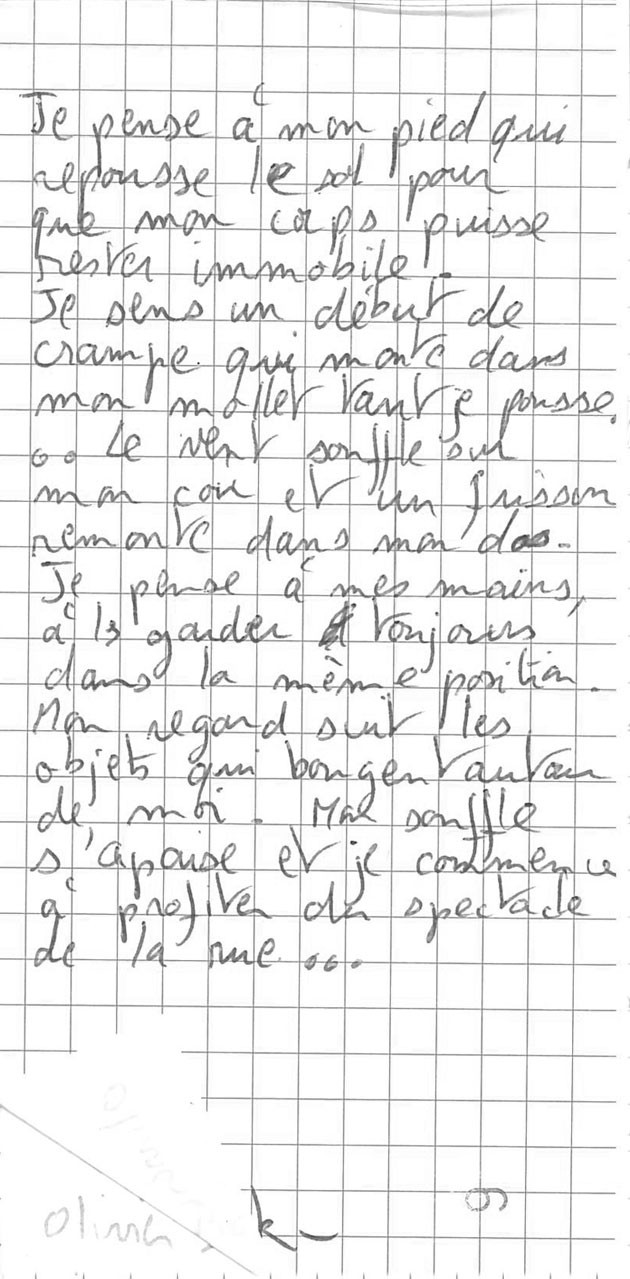 Je pense à mon pied qui
repousse le sol pour
que mon corps puisse
rester immobile.
Je sens un début de
crampe qui monte dans
mon mollet tant je pousse.
... Le vent souffle sur
mon cou et un frisson
remonte dans mon dos.
Je pense à mes mains,
à ls garder toujours
dans la même position.
Mon regard suit les
objets qui bougent autour
de moi. Mon souffle
s'apaise et je commence
à profiter du spectacle
de la rue...
Olivier
k_